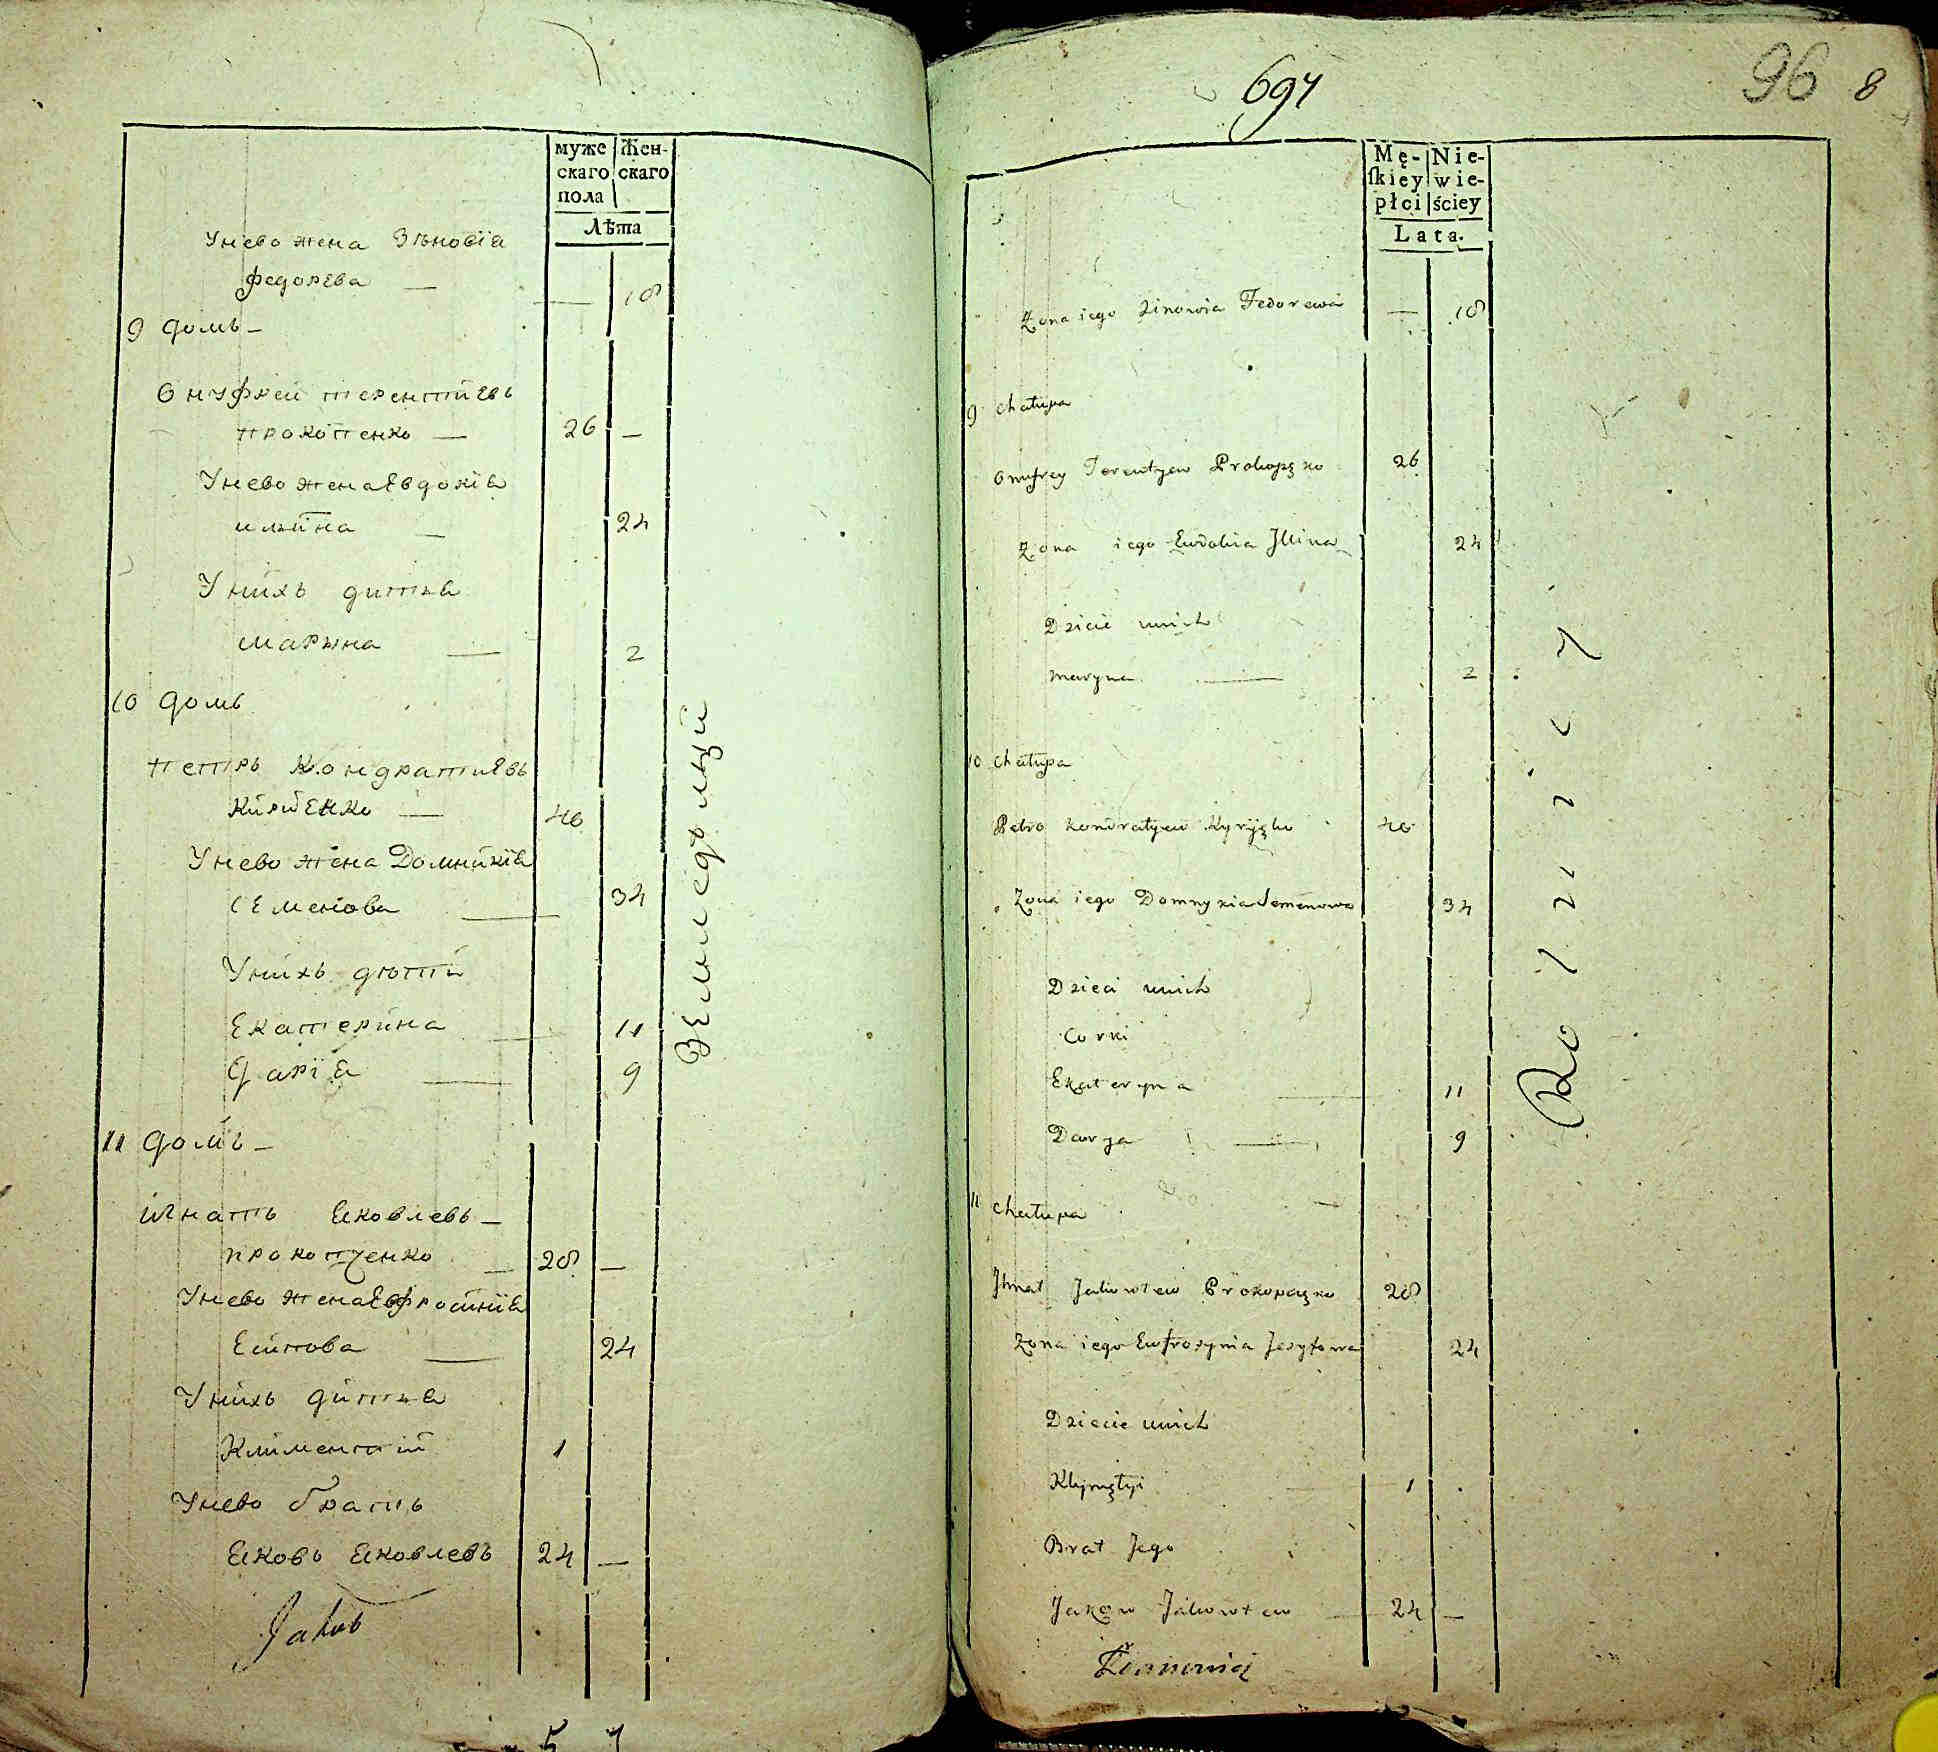 муже Жен-
скаго скаго
пола
Лѣта
Унево жена Зѣновія
федорева — — 18
9 домъ —
Онуфрей терентіевъ
прокопенко — 26 —
Унево жена Евдокія
ильина — 24
Унихъ дитя
марына — 2
10 домъ
петръ Кондратиевъ
Кириенко — 40
Унево жена Домникія
Семенова — 34
Унихъ дѣти
Екатерина — 11
Дарія — 9
11 домъ —
игнатъ Яковлевъ —
прокопченко — 28 —
Унево жена Евфросинія
Есипова — 24
Унихъ дитя
Климентий 1
Унево братъ
Яковъ Яковлевъ 24 —
Jakub
Земледѣлцы
694
96 8
Mę- Nie-
ſkiey wie-
płci ściey
Lata.
Zona iego Zinowia Fedorewa — 18
9 chatupa
Onufrey Terentyew Prokopęko 26
Zona iego Eudokia Illina 24
Dzicie unich
Maryna — 2
10 Chatupa
Petro Kondratyew Kyryęko 40
Zona iego Domnykia Semenowa 34
Dzieci unich
Corki
Ekateryna — 11
Darya — 9
11 Chatupa
Jhnat Jakowlew Prokopczęko 28
Zona iego Eufrosynia Jesypowa 24
Dziecie unich
Klymętyi 1
Brat Jego
Jakow Jakowlew — 24 —
Rolnicy